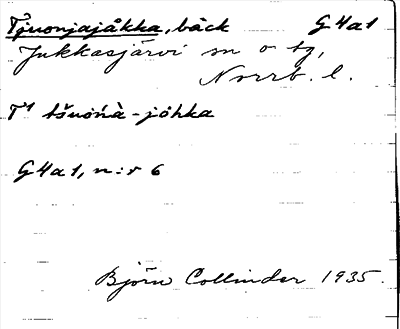 Tjuonjajåkka, bäck G4a1
Jukkasjärvi sn o tg,
Norrb. l.
T¹ tšuońà-jåhka
G4a1, n:r 6
Björn Collinder 1935.